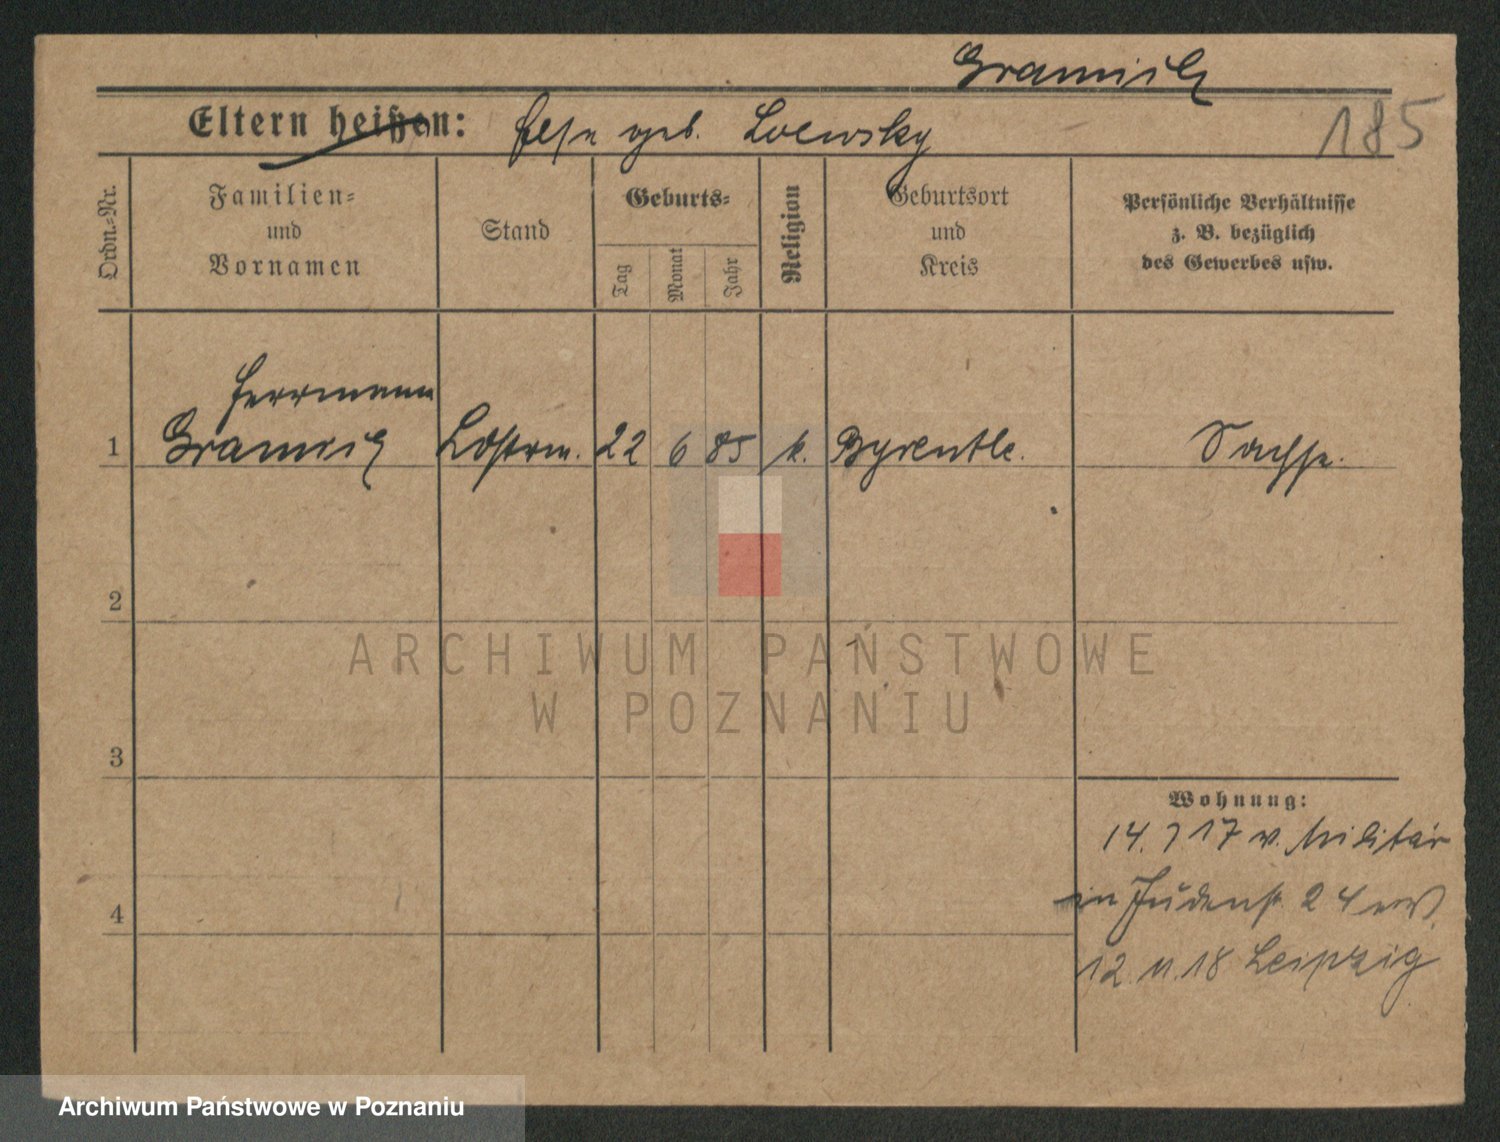 Gramisch
Eltern heißen:
Else geb. Loewsky
185
Ordn.-Nr.
Familien-
und
Vornamen
Stand
Geburts-
Tag
Monat
Jahr
Religion
Geburtsort
und
Kreis
Persönliche Verhältnisse
z. B. bezüglich
des Gewerbes usw.
Herrmann
1 22 6 85 k. Sachse.
2
ARCHIWUM PAŃSTWOWE
W POZNANIU
3
Wohnung:
14. 7 17 v. Militär
in Judenst. 24
4
12. 11. 18 Leipzig
Archiwum Państwowe w Poznaniu